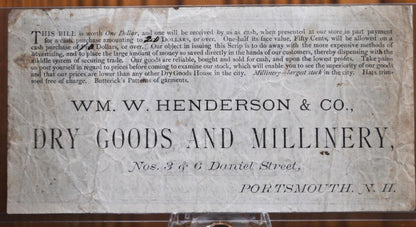 THIS BILL is worth One Dollar, and one will be received by us as cash, when presented at our store in part payment
for a cash purchase amounting to 20 DOLLARS, or over. One-half its face value, Fifty Cents, will be allowed on a
cash purchase of 10 Dollars, or over. Our object in issuing this Scrip is to do away with the more expensive methods of
advertising, and to place the large amount of money so saved directly in the hands of our customers, thereby dispensing with the
middle system of securing trade. Our goods are reliable, bought and sold for cash, and upon the lowest profits. Take pains
to post yourself in regard to prices before coming to examine our stock, which will enable you to see the superiority of our goods
and that our prices are lower than any other Dry Goods House in the city. Millinery—largest stock in the city. Hats trim-
med free of charge. Butterick's Patterns of garments.
WM. W. HENDERSON & CO.,
DRY GOODS AND MILLINERY,
Nos. 3 & 6 Daniel Street,
PORTSMOUTH, N. H.